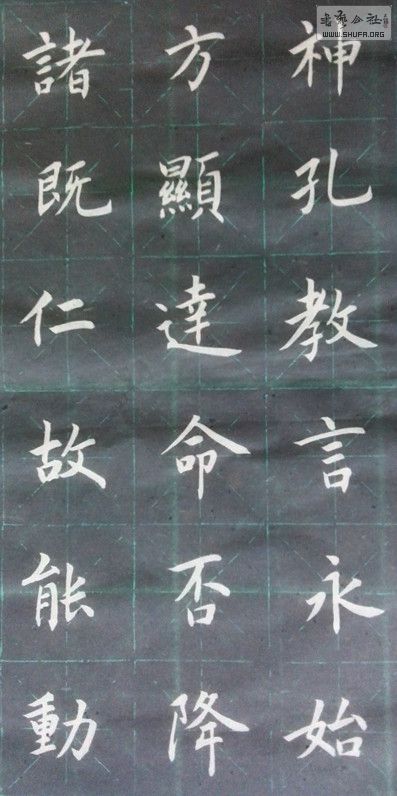 神孔教言永始
方顯達命否降
諸既仁故能動
書藝公社
WWW.SHUFA.ORG